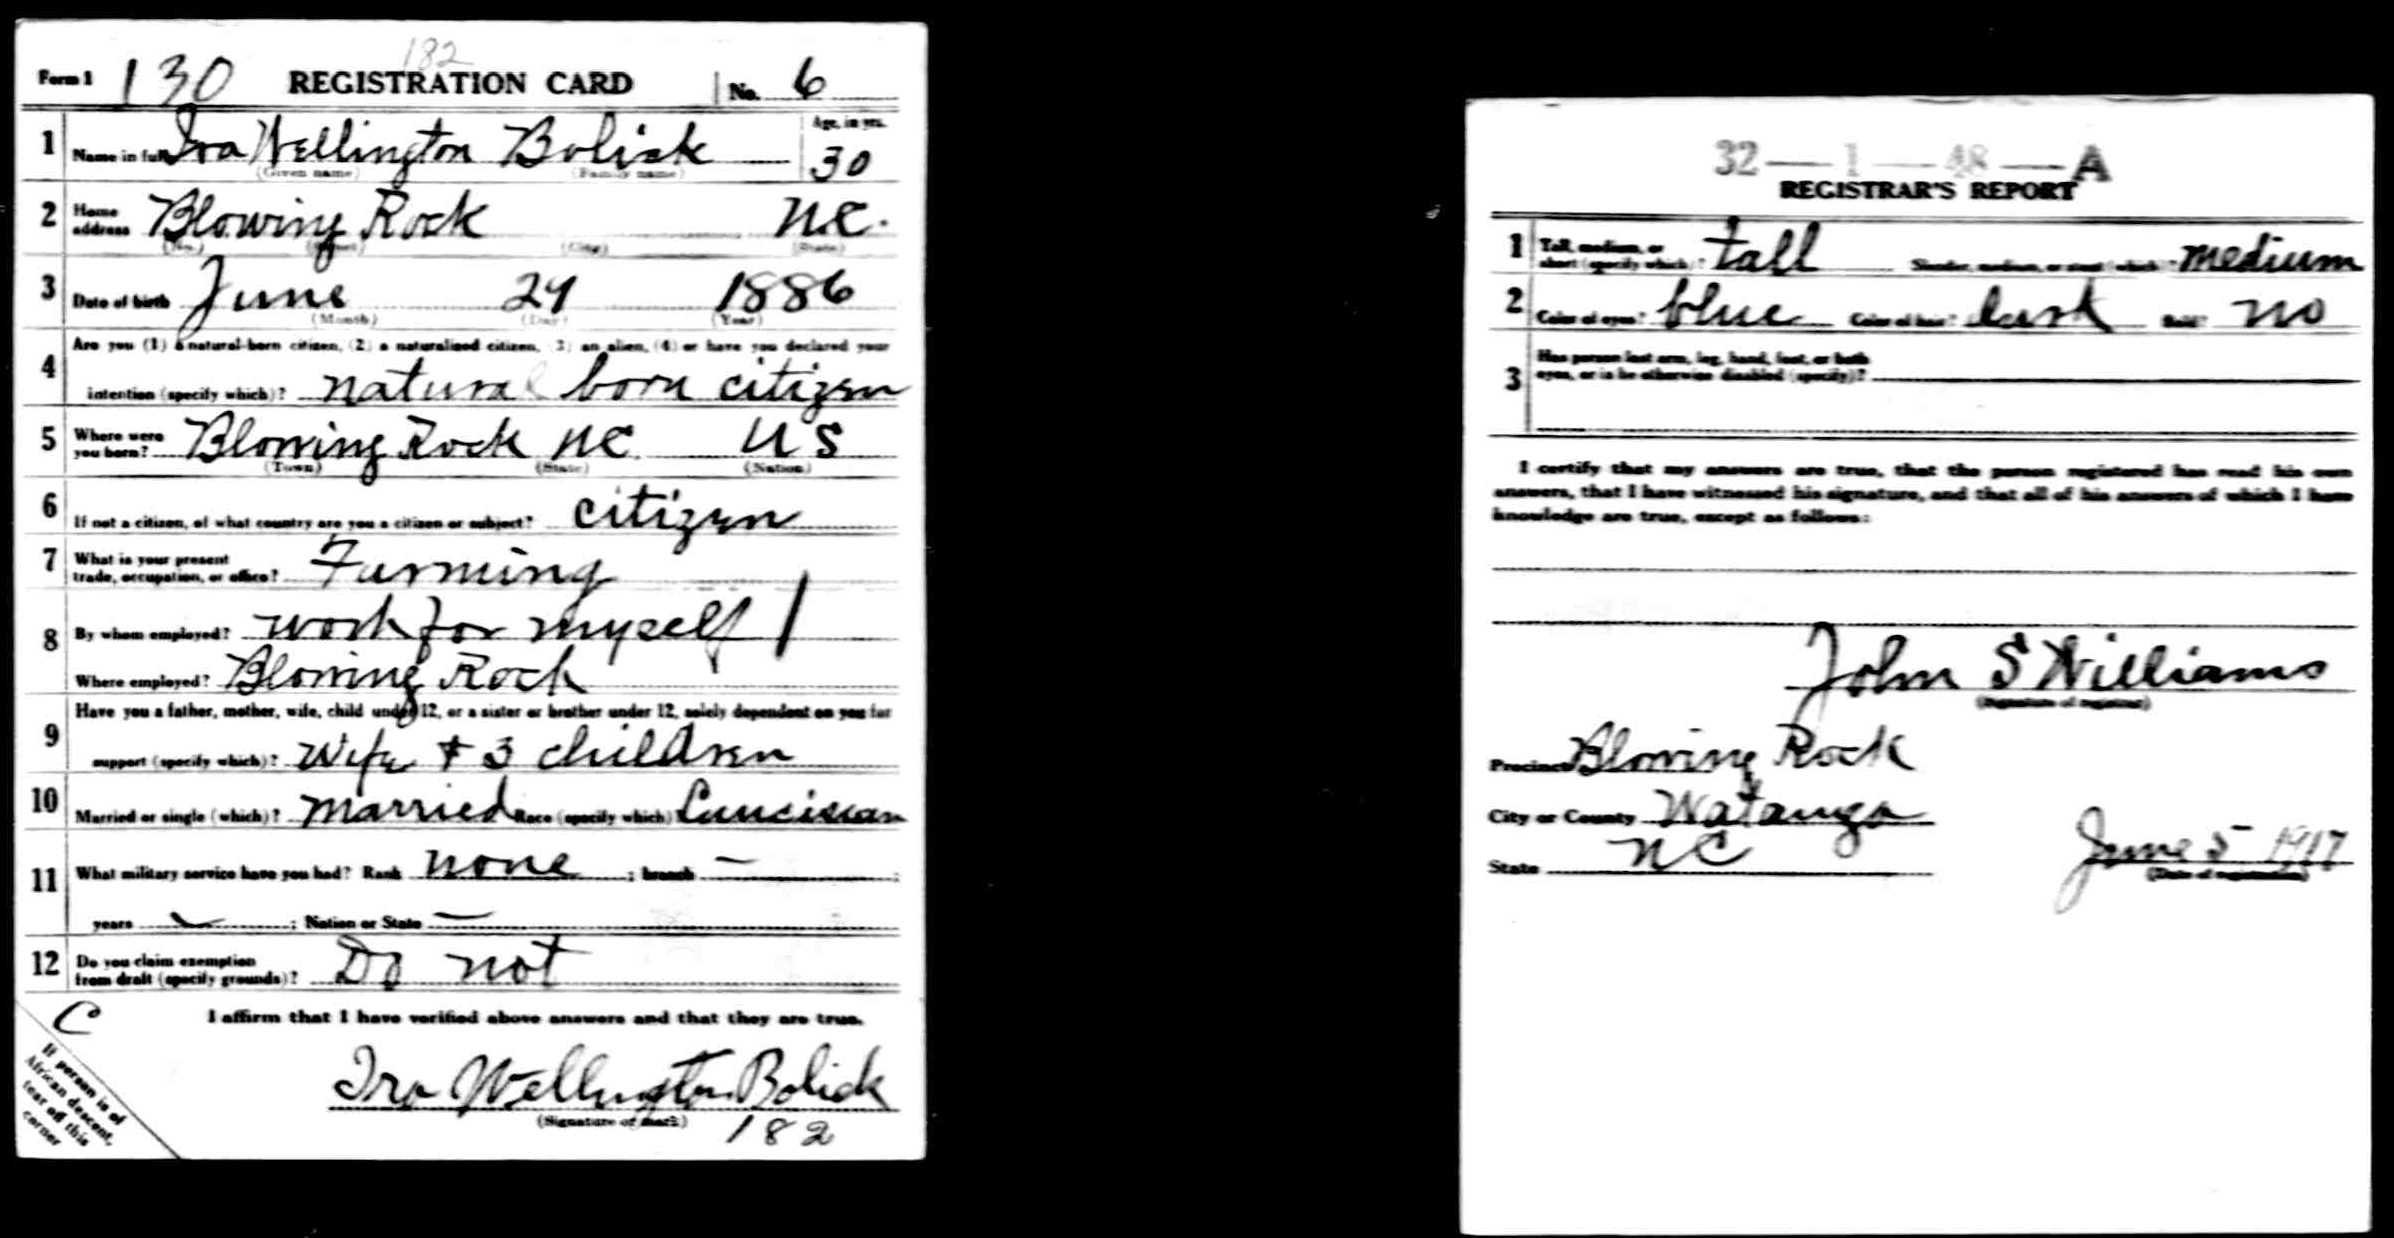 182
Form 1 130 REGISTRATION CARD No. 6
1 Name in full Ira Wellington Bolick Age, in yrs. 30
(Given name) (Family name)
2 Home address Blowing Rock N.C.
(No.) (Street) (City) (State)
3 Date of birth June 29 1886
(Month) (Day) (Year)
4 Are you (1) a natural-born citizen, (2) a naturalized citizen, (3) an alien, (4) or have you declared your
intention (specify which)? natural born citizen
5 Where were you born? Blowing Rock NC US
(Town) (State) (Nation)
6 If not a citizen, of what country are you a citizen or subject? citizen
7 What is your present trade, occupation, or office? Farming
8 By whom employed? work for myself
Where employed? Blowing Rock
9 Have you a father, mother, wife, child under 12, or a sister or brother under 12, solely dependent on you for
support (specify which)? Wife + 3 children
10 Married or single (which)? Married Race (specify which)
11 What military service have you had? Rank none ; branch — ;
years — ; Nation or State —
12 Do you claim exemption from draft (specify grounds)? Do not
C I affirm that I have verified above answers and that they are true.
Ira Wellington Bolick
(Signature or mark) 182
If person is of
African descent,
tear off this
corner
32—1—48—A
REGISTRAR'S REPORT
1 Tall, medium, or short (specify which)? tall Slender, medium, or stout (which)? medium
2 Color of eyes? blue Color of hair? dark Bald? no
3 Has person lost arm, leg, hand, foot, or both
eyes, or is he otherwise disabled (specify)?
I certify that my answers are true, that the person registered has read his own
answers, that I have witnessed his signature, and that all of his answers of which I have
knowledge are true, except as follows:
John S Williams
(Signature of registrar)
Precinct Blowing Rock
City or County Watauga
State NC June 5 1917
(Date of registration)